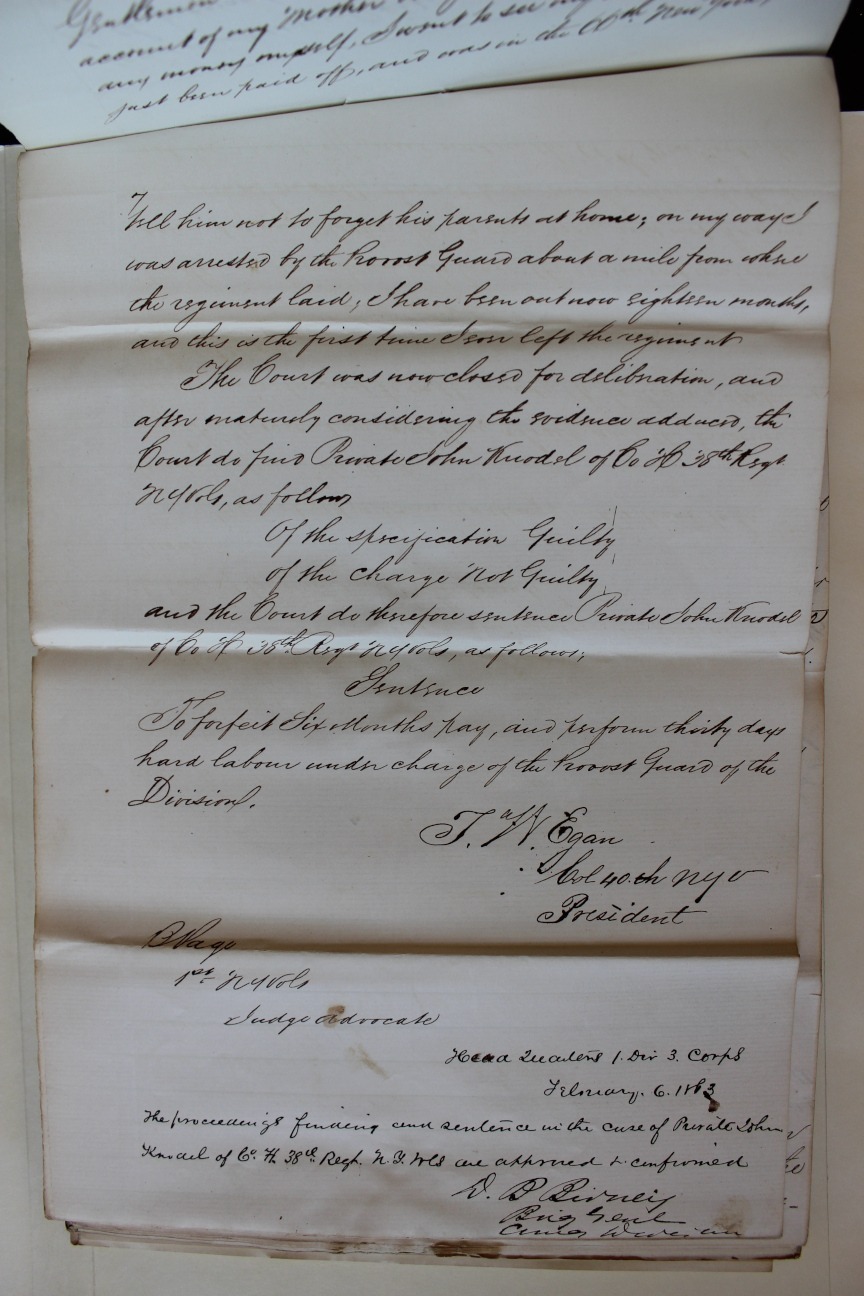 Gentlemen
account of my Mother
any money myself, I went to see my
just been paid off, and was in the 66th New York,
Tell him not to forget his parents at home; on my way I
was arrested by the Provost Guard about a mile from where
the regiment laid; I have been out now eighteen months,
and this is the first time I ever left the regiment
The Court was now closed for deliberation, and
after maturely considering the evidence adduced, the
Court do find Private John Knodel of Co H 38th Regt
N Y Vols, as follows
Of the specification Guilty
of the charge Not Guilty
and the Court do therefore sentence Private John Knodel
of Co H 38th Regt N Y Vols, as follows;
Sentence
To forfeit Six Months pay, and perform thirty days
hard labour under charge of the Provost Guard of the
Division.
T. W. Egan
Col 40th N Y V
President
B Page
1st N Y Vols
Judge Advocate
Head Quarters 1. Div 3. Corps
February. 6. 1863
The proceedings finding and sentence in the case of Private John
Knodel of Co. H. 38th Regt. N.Y. Vols are approved & confirmed
D. B Birney
Brig Genl
Comg Division